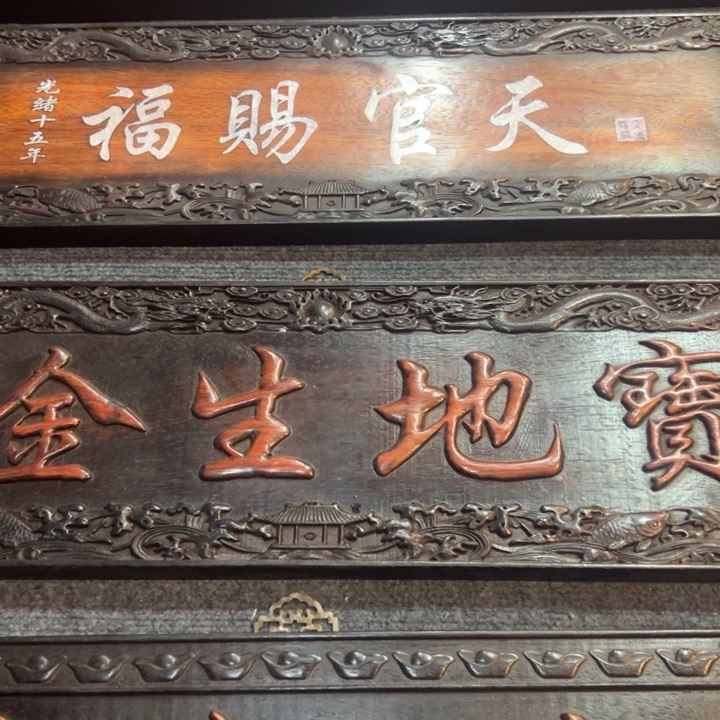 天官賜福
光緒十五年
寶地生金